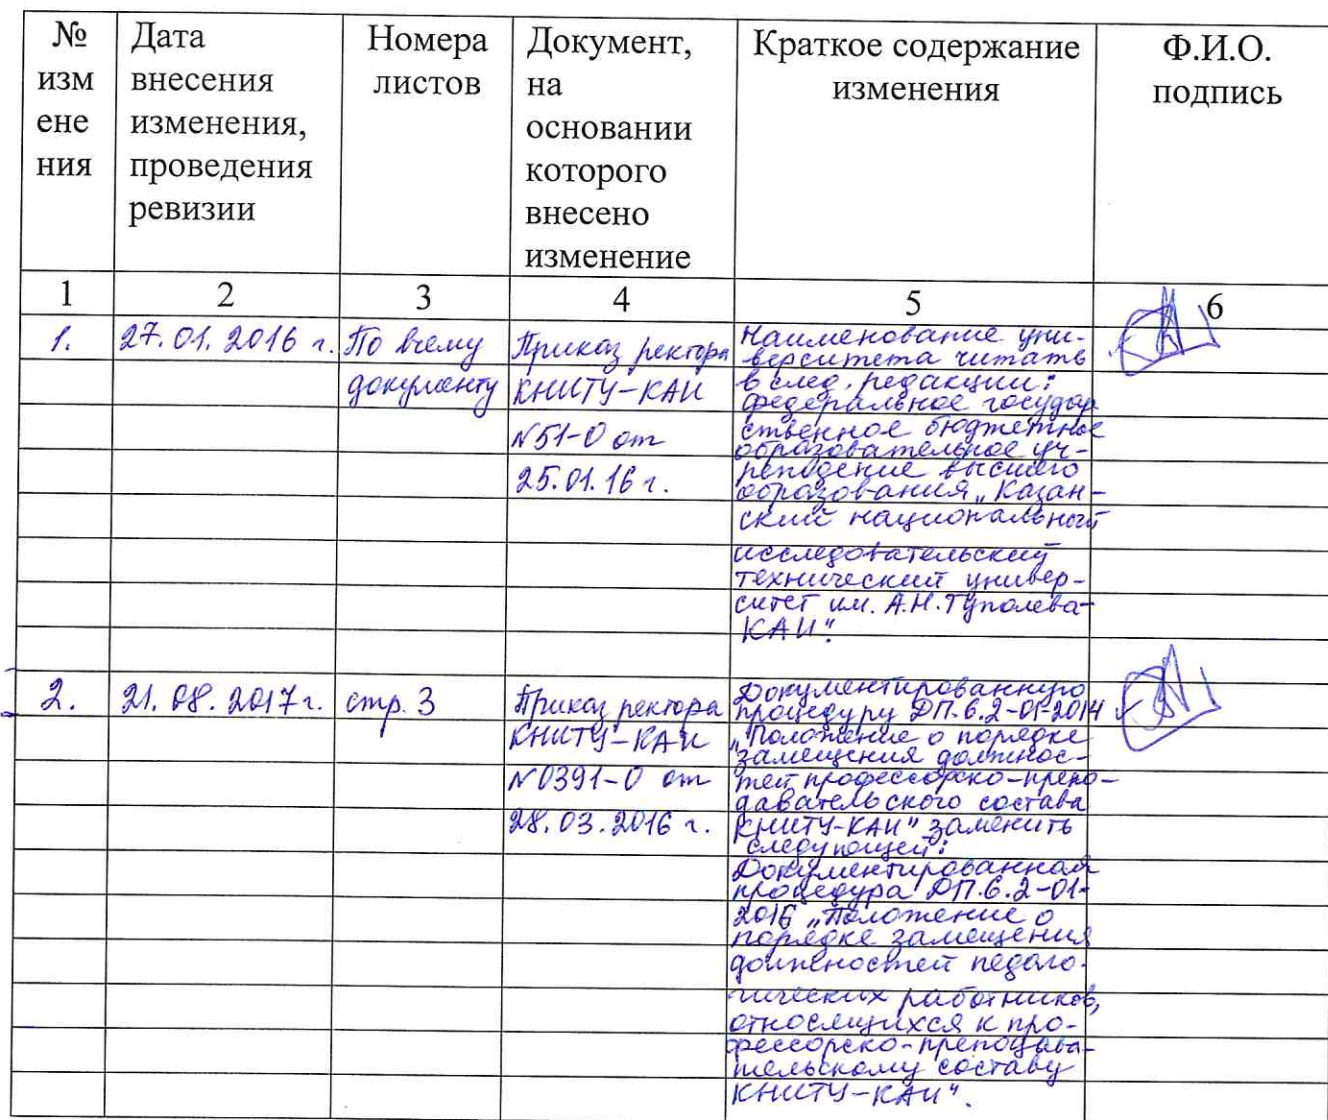 № изм ене ния
Дата внесения изменения, проведения ревизии
Номера листов
Документ, на основании которого внесено изменение
Краткое содержание изменения
Ф.И.О. подпись
1 2 3 4 5 6
1.
27.01.2016 г.
По всему
документу
Приказ ректора
КНИТУ-КАИ
№51-О от
25.01.16 г.
Наименование уни-
верситета читать
в след. редакции:
федеральное государ
ственное бюджетное
образовательное уч-
реждение высшего
образования „Казан-
ский национальный
исследовательский
технический универ-
ситет им. А.Н.Туполева-
КАИ".
2.
21.08.2017г.
стр. 3
Приказ ректора
КНИТУ-КАИ
№0391-О от
28.03.2016 г.
Документированную
процедуру ДП.6.2-01-2014
„Положение о порядке
замещения должнос-
тей профессорско-препо-
давательского состава
КНИТУ-КАИ" заменить
следующей:
Документированная
процедура ДП.6.2-01-
2016 „Положение о
порядке замещения
должностей педаго-
гических работников,
относящихся к про-
фессорско-преподава-
тельскому составу
КНИТУ-КАИ".